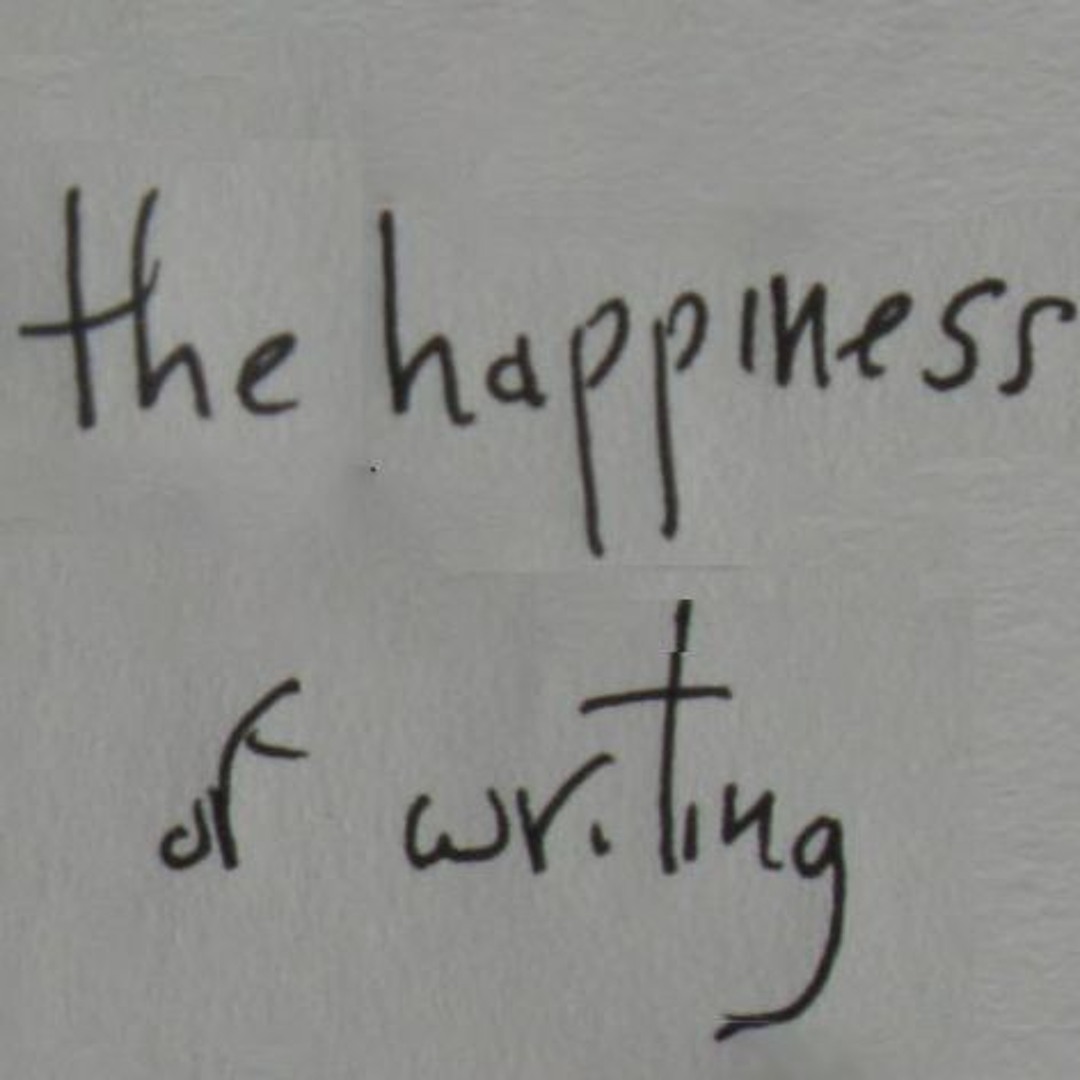 the happiness
of writing